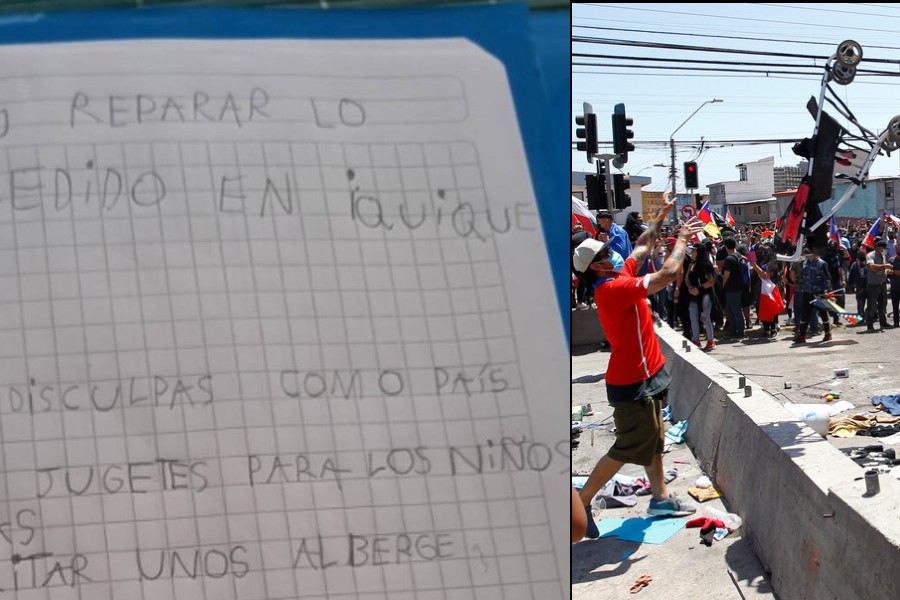 REPARAR LO
EDIDO EN iQUiQUE
DiSCULPAS COMO PAÍS
JUGETES PARA LOS NiÑOS
UNOS ALBERGE